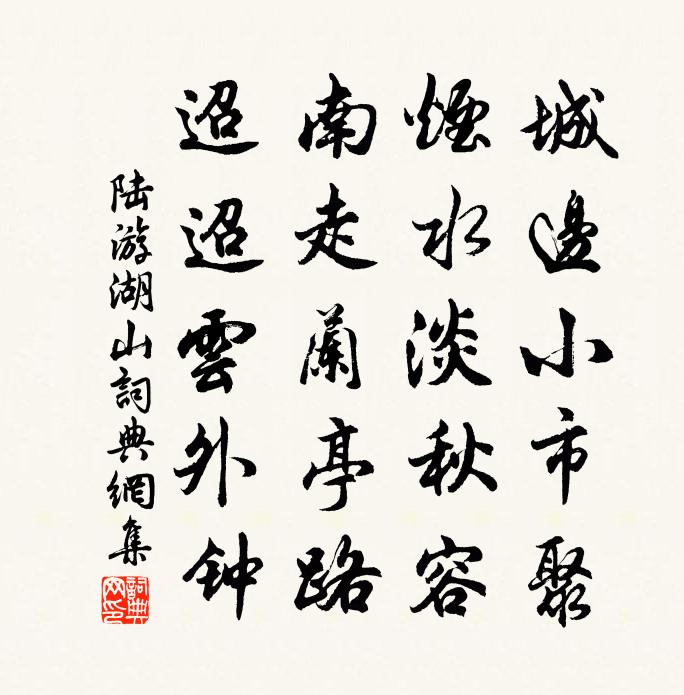 城邊小市聚
煙水淡秋容
南走蘭亭路
迢迢雲外钟
陆游湖山詞典網集
詞典网印